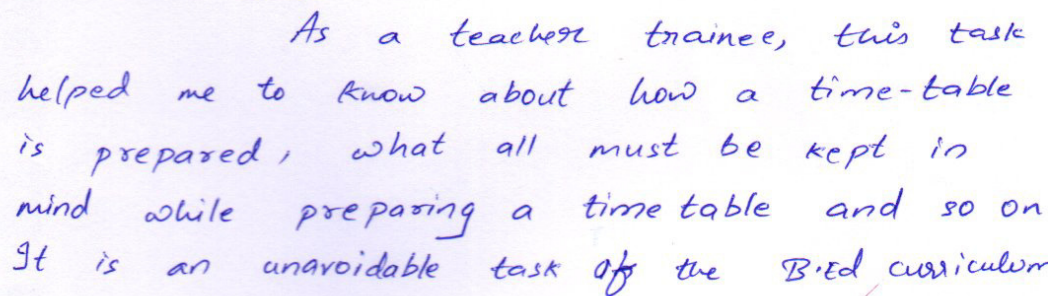 As a teacher trainee, this task
helped me to know about how a time-table
is prepared, what all must be kept in
mind while preparing a time table and so on
It is an unavoidable task of the B.Ed curriculum